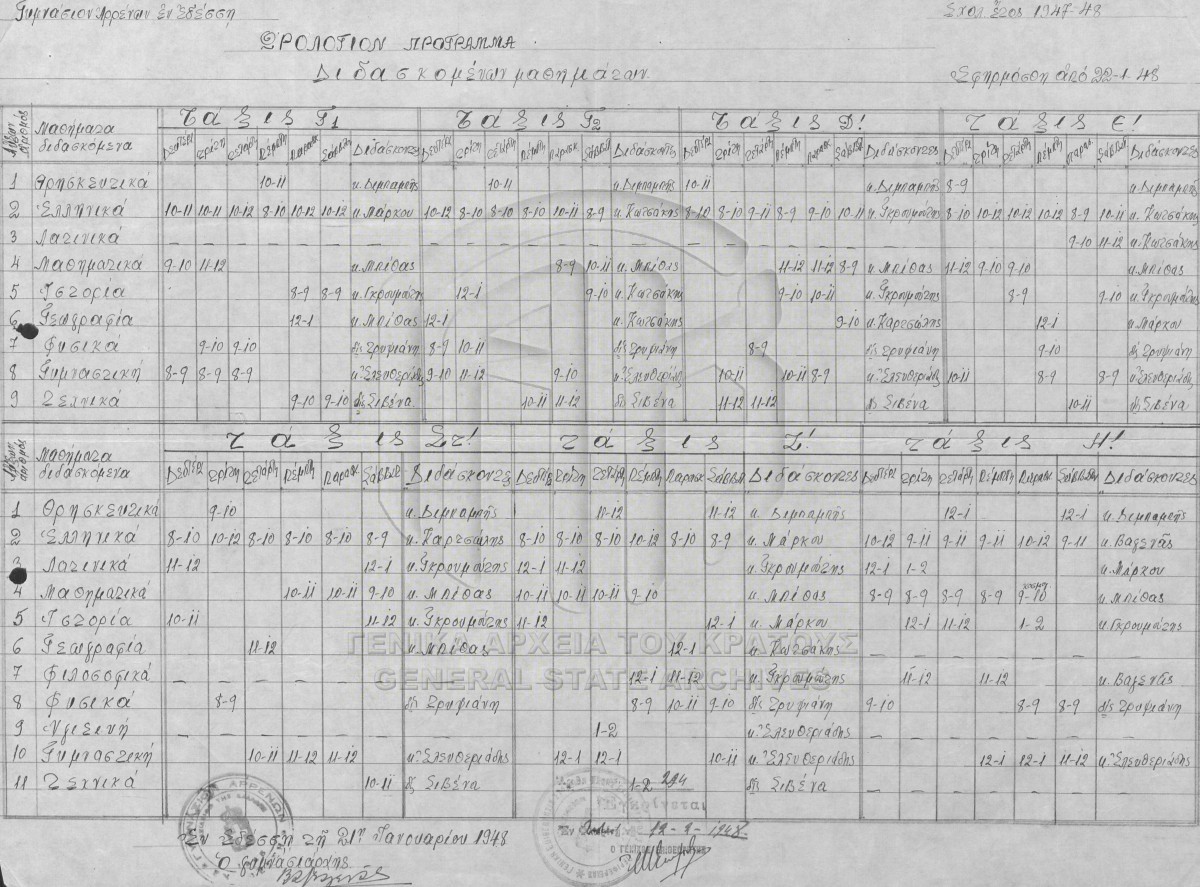 Γυμνάσιον Αρρένων ἐν Ἐδέσσῃ Σχολ. ἔτος 1947-48
ΩΡΟΛΟΓΙΟΝ ΠΡΟΓΡΑΜΜΑ
Διδασκομένων μαθημάτων Ἐφηρμόσθη ἀπό 22-1-48
Αὔξων ἀριθμός Μαθήματα διδασκόμενα Τάξις Γ1 Τάξις Γ2 Τάξις Δ! Τάξις Ε!
Δευτέρα Τρίτη Τετάρτη Πέμπτη Παρασκ. Σάββατ. Διδάσκοντες Δευτέρα Τρίτη Τετάρτη Πέμπτη Παρασκ. Σάββατ. Διδάσκοντες Δευτέρ. Τρίτη Τετάρτη Πέμπτη Παρασ. Σάββατ. Διδάσκοντες Δευτέρ. Τρίτη Τετάρτη Πέμπτη Παρασ. Σάββατ. Διδάσκοντες
1 Θρησκευτικά 10-11 κ. 10-11 κ. 10-11 κ. 8-9 κ.
2 Ἑλληνικά 10-11 10-11 10-12 8-10 10-12 10-12 κ. Μάρκου 10-12 8-10 8-10 8-10 10-11 8-9 κ. Κωτσάκης 8-10 8-10 9-11 8-9 9-10 10-11 κ. Γκρουμώτης 8-10 10-12 10-12 10-12 8-9 10-11 κ. Κωτσάκης
3 Λατινικά — — — — — — — — — — — — — — — — — — 9-10 11-12 κ. Κωτσάκης
4 Μαθηματικά 9-10 11-12 κ. Μπίθας 8-9 10-11 κ. Μπίθας 11-12 11-12 8-9 κ. Μπίθας 11-12 9-10 9-10 κ. Μπίθας
5 Ἱστορία 8-9 8-9 κ. Γκρουμώτης 12-1 9-10 κ. Κωτσάκης 9-10 10-11 κ. Γκρουμώτης 8-9 9-10 κ. Γκρουμώτης
6 Γεωγραφία 12-1 κ. Μπίθας 12-1 κ. Κωτσάκης 9-10 κ. Καρτσώλης 12-1 κ. Μάρκου
7 Φυσικά 9-10 9-10 δίς Τρυφιάνη 8-9 10-11 δίς Τρυφιάνη 8-9 δίς Τρυφιάνη 9-10 δίς Τρυφιάνη
8 Γυμναστική 8-9 8-9 8-9 κ. Ἐλευθεριάδης 9-10 11-12 9-10 κ. Ἐλευθεριάδης 10-11 10-11 8-9 κ. Ἐλευθεριάδης 10-11 8-9 8-9 κ. Ἐλευθεριάδης
9 Τεχνικά 9-10 9-10 δίς Σιβένα 10-11 11-12 δίς Σιβένα 11-12 11-12 δίς Σιβένα 10-11 δίς Σιβένα
Αὔξων ἀριθμός Μαθήματα διδασκόμενα Τάξις Στ! Τάξις Ζ! Τάξις Η!
Δευτέρα Τρίτη Τετάρτη Πέμπτη Παρασ. Σάββατ. Διδάσκοντες Δευτέρ. Τρίτη Τετάρτη Πέμπτη Παρασκ. Σάββατ. Διδάσκοντες Δευτέρα Τρίτη Τετάρτη Πέμπτη Παρασκ. Σάββατον Διδάσκοντες
1 Θρησκευτικά 9-10 κ. 11-12 11-12 κ. 12-1 12-1 κ.
2 Ἑλληνικά 8-10 10-12 8-10 8-10 8-10 8-9 κ. Καρτσώλης 8-10 8-10 8-10 10-12 8-10 8-9 κ. Μάρκου 10-12 9-11 9-11 9-11 10-12 9-11 κ. Βαγενᾶς
3 Λατινικά 11-12 12-1 κ. Γκρουμώτης 12-1 11-12 κ. Γκρουμώτης 12-1 1-2 κ. Μάρκου
4 Μαθηματικά 10-11 10-11 9-10 κ. Μπίθας 10-11 10-11 10-11 9-10 κ. Μπίθας 8-9 8-9 8-9 8-9 9-10 κ. Μπίθας
5 Ἱστορία 10-11 11-12 κ. Γκρουμώτης 11-12 12-1 κ. Μάρκου 12-1 11-12 1-2 κ. Γκρουμώτης
6 Γεωγραφία 11-12 κ. Μπίθας 12-1 κ. Κωτσάκης — — — — — —
7 Φιλοσοφικά — — — — — — — 12-1 11-12 κ. Γκρουμώτης 11-12 11-12 κ. Βαγενᾶς
8 Φυσικά 8-9 δίς Τρυφιάνη 8-9 10-11 9-10 δίς Τρυφιάνη 9-10 8-9 8-9 δίς Τρυφιάνη
9 Ὑγιεινή — — — — — — — 1-2 κ. Ἐλευθεριάδης — — — — — —
10 Γυμναστική 10-11 11-12 11-12 κ. Ἐλευθεριάδης 12-1 12-1 10-11 κ. Ἐλευθεριάδης 12-1 12-1 11-12 κ. Ἐλευθεριάδης
11 Τεχνικά 10-11 δίς Σιβένα 1-2 δίς Σιβένα — — — — — —
ΓΕΝΙΚΑ ΑΡΧΕΙΑ ΤΟΥ ΚΡΑΤΟΥΣ
GENERAL STATE ARCHIVES
294
Ἐγκρίνεται
Ἐν Ἐδέσσῃ τῇ 21ῃ Ἰανουαρίου 1948 Ἐν 12-2-1948
Ὁ Γυμνασιάρχης Ο ΓΕΝΙΚΟΣ ΕΠΙΘΕΩΡΗΤΗΣ
Βαγενᾶς